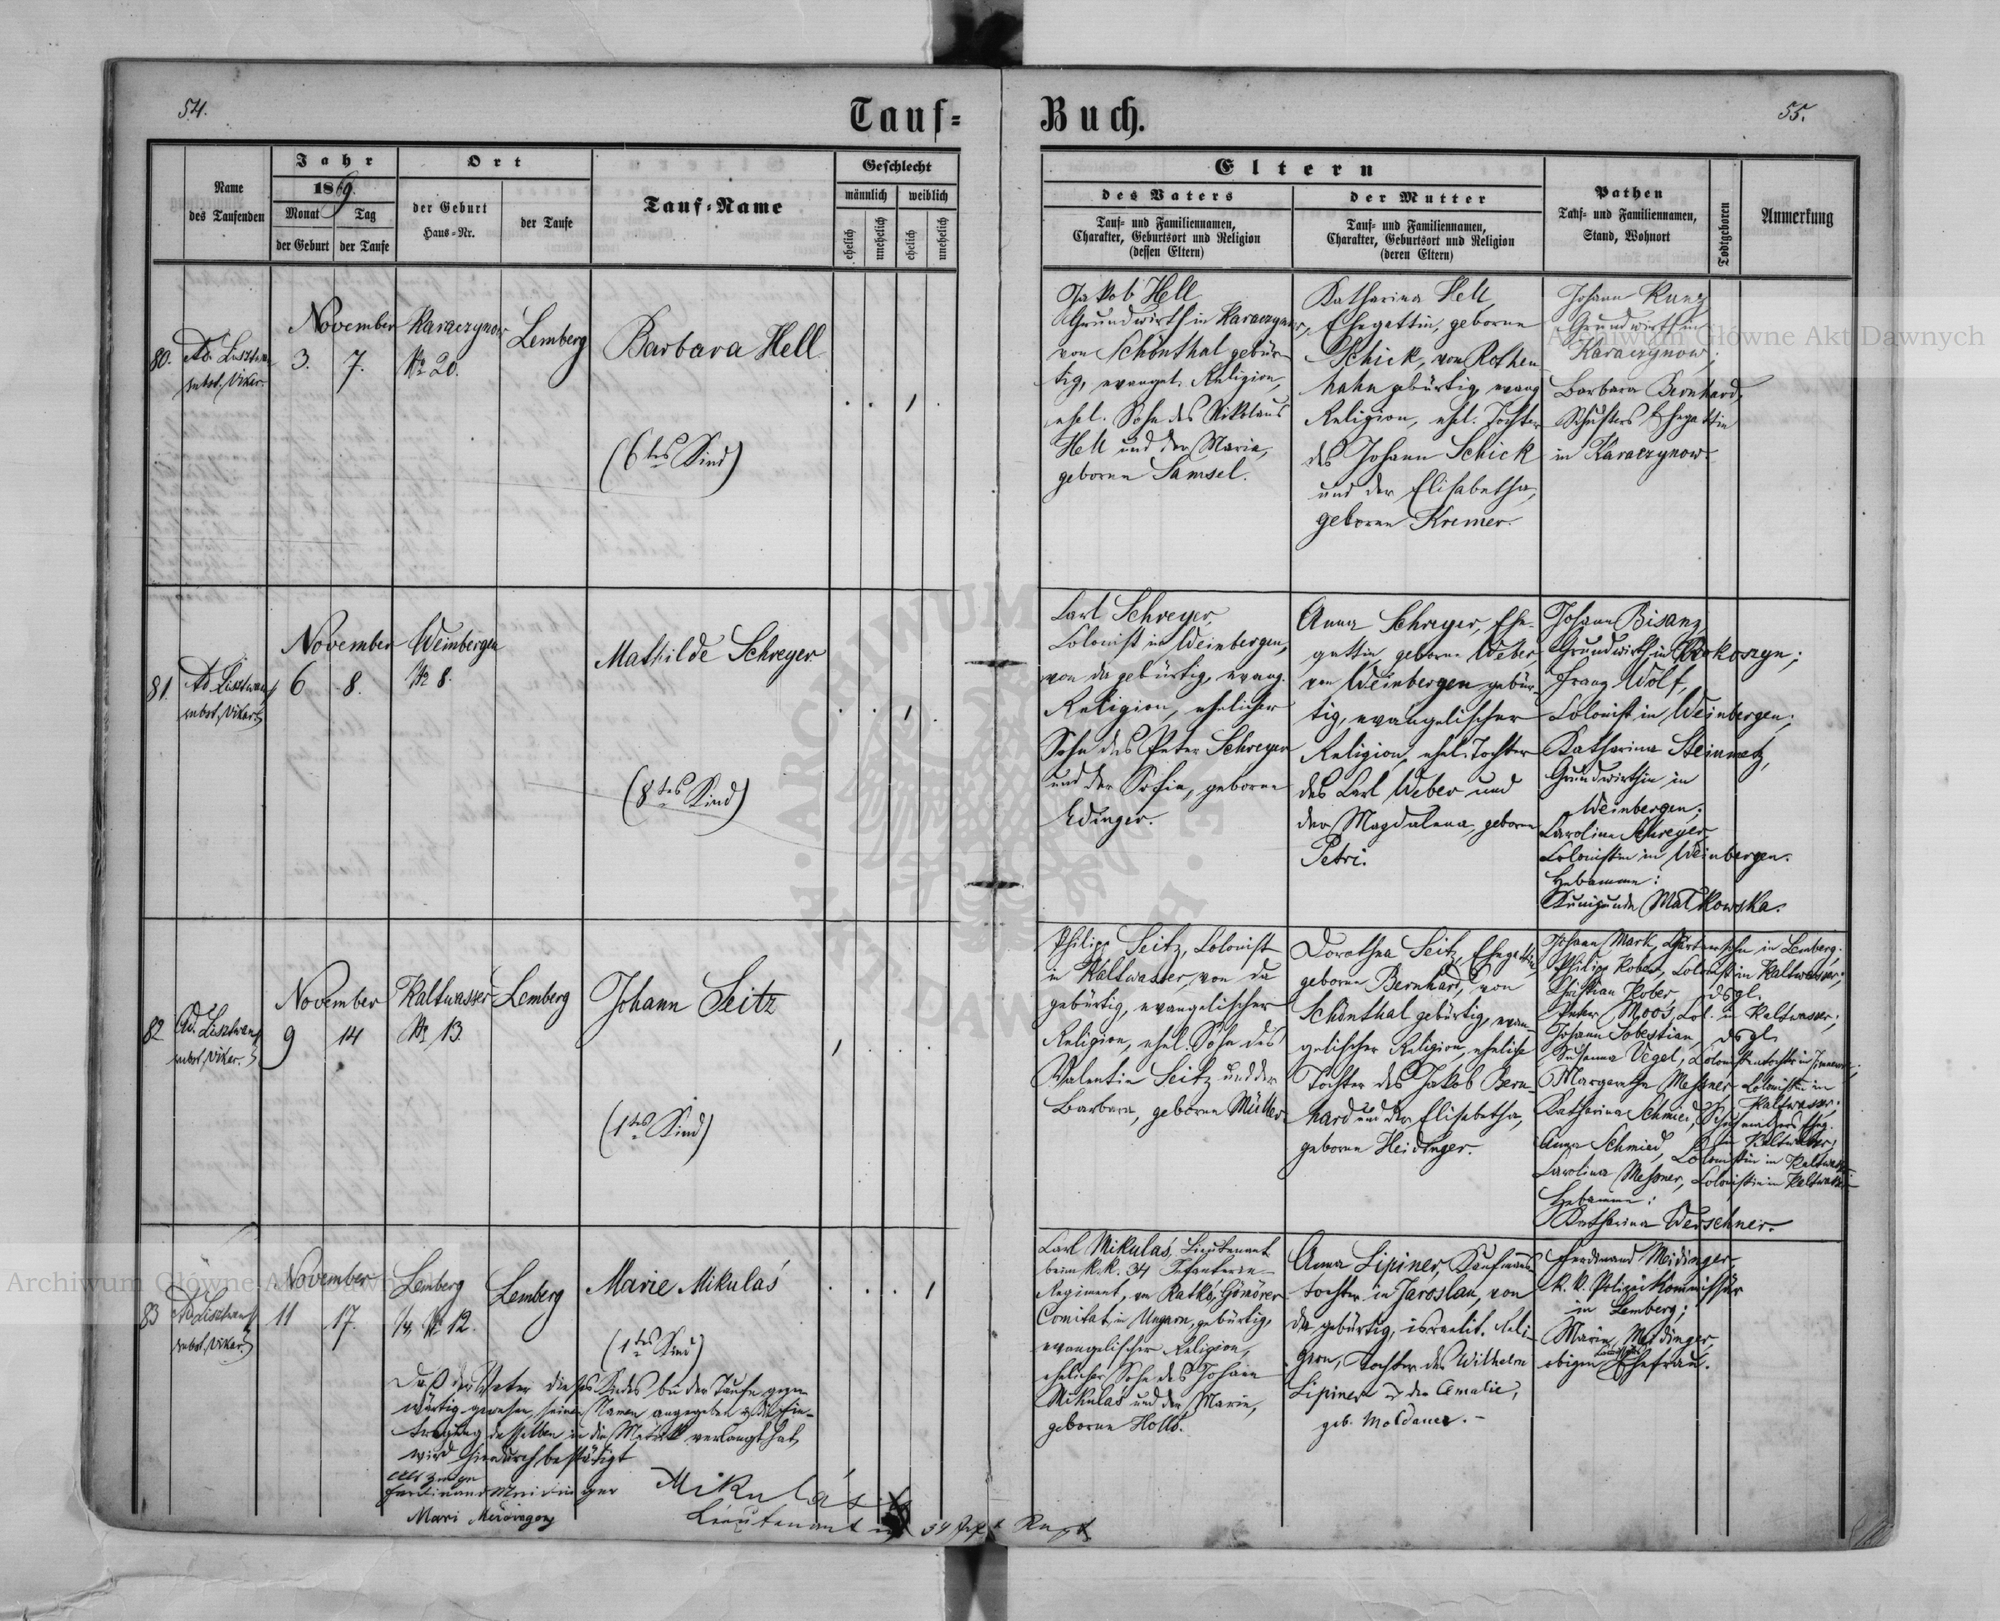 54.
Tauf=
Buch.
55.
Name
des Taufenden
Jahr
1869.
Monat
Tag
der Geburt
der Taufe
Ort
der Geburt
Haus=Nr.
der Taufe
Tauf=Name
Geschlecht
männlich
weiblich
ehelich
unehelich
ehelich
unehelich
Eltern
des Vaters
Tauf= und Familiennamen,
Charakter, Geburtsort und Religion
(dessen Eltern)
der Mutter
Tauf= und Familiennamen,
Charakter, Geburtsort und Religion
(deren Eltern)
Pathen
Tauf= und Familiennamen,
Stand, Wohnort
Todtgeboren
Anmerkung
80.
subst. Vikar.
November
3. 7.
Karaczynow
Nr 20.
Lemberg
Barbara Hell
(6tes Kind)
Jakob Hell
Grundwirth in Karaczynow,
von Schönthal gebür-
tig, evangel. Religion,
ehel. Sohn des Nikolaus
Hell und der Maria,
geborne Samsel.
Katharina Hell,
Ehegattin, geborne
Schick, von Rothen
hahn gebürtig, evang.
Religion, ehel. Tochter
des Johann Schick
und der Elisabetha,
geborne Kremer.
Johann Kunz
Grundwirth in
Karaczynow;
Barbara Bernhard,
Schusters Ehegattin
in Karaczynow.
81.
subst. Vikar
November
6 8.
Weinbergen
Nr 8.
Mathilde Schreyer
(8tes Kind)
Carl Schreyer,
Colonist in Weinbergen,
von da gebürtig, evang.
Religion, ehelicher
Sohn des Peter Schreyer
und der Sofia, geborne
Edinger.
Anna Schreyer, Ehe-
gattin, geborne Weber,
von Weinbergen gebür-
tig, evangelischer
Religion, ehel. Tochter
des Carl Weber und
der Magdalena, geborne
Petri.
Johann Bisanz
Grundwirth in Krokoszyn;
Franz Wolf,
Colonist in Weinbergen;
Katharina Steinmetz,
Grundwirthin in
Weinbergen;
Carolina Schreyer
Colonistin in Weinbergen.
Hebamme:
Kunigunda Malkowska.
82
subst. Vikar.
November
9 14
Kaltwasser
Nr 13.
Lemberg
Johann Seitz
(1tes Kind)
Philipp Seitz, Colonist
in Kaltwasser, von da
gebürtig, evangelischer
Religion, ehel. Sohn des
Valentin Seitz und der
Barbara, geborne Müller
Dorothea Seitz, Ehegattin,
geborne Bernhard, von
Schönthal gebürtig, evan-
gelischer Religion, eheliche
Tochter des Jakob Bern-
hard und der Elisabetha,
geborne Heidinger.
Johann Mark, in Lemberg;
Philipp Kober, Colonist in Kaltwasser;
Christian Kober, dsgl.
Peter Moos, Col. in Kaltwasser;
Johann Sebestian, dsgl.
Susanna Vogel,
Margaretha Messner Colonistin in
Kaltwasser;
Katharina Schmied,
in Kaltwasser;
Anna Schmied, Colonistin in Kaltwasser
Carolina Messner, Colonistin in Kaltwasser
Hebamme:
Katharina Werschner.
83
subst. Vikar
November
11 17.
Lemberg
Nr 12.
Lemberg
Marie Mikulás
(1tes Kind)
Daß der Vater dieses Kindes bei der Taufe gegen
wärtig gewesen, seinen Namen angegeben u. die Ein-
tragung desselben in die Matrik verlangt hat,
wird hierdurch bestätigt
als Zeuge
Ferdinand Meidinger
Mari Meidinger
Mikulás
Lieutenant
Carl Mikulás, Lieutenant
beim k.k. 34 Infanterie-
Regiment, von Ratkó, Gömörer
Comitat in Ungarn, gebürtig,
evangelischer Religion,
ehelicher Sohn des Johann
Mikulás und der Marie,
geborne Holló.
Anna Lipiner, Kaufmanns
tochter in Jaroslau, von
da gebürtig, israelit. Reli-
gion, Tochter des Wilhelm
Lipiner u. der Amalie,
geb. Moldauer.
Ferdinand Meidinger
k. k. Polizei Kommissär
in Lemberg;
Marie Meidinger,
obigen Ehefrau.
Archiwum Główne Akt Dawnych
Archiwum Główne Akt Dawnych